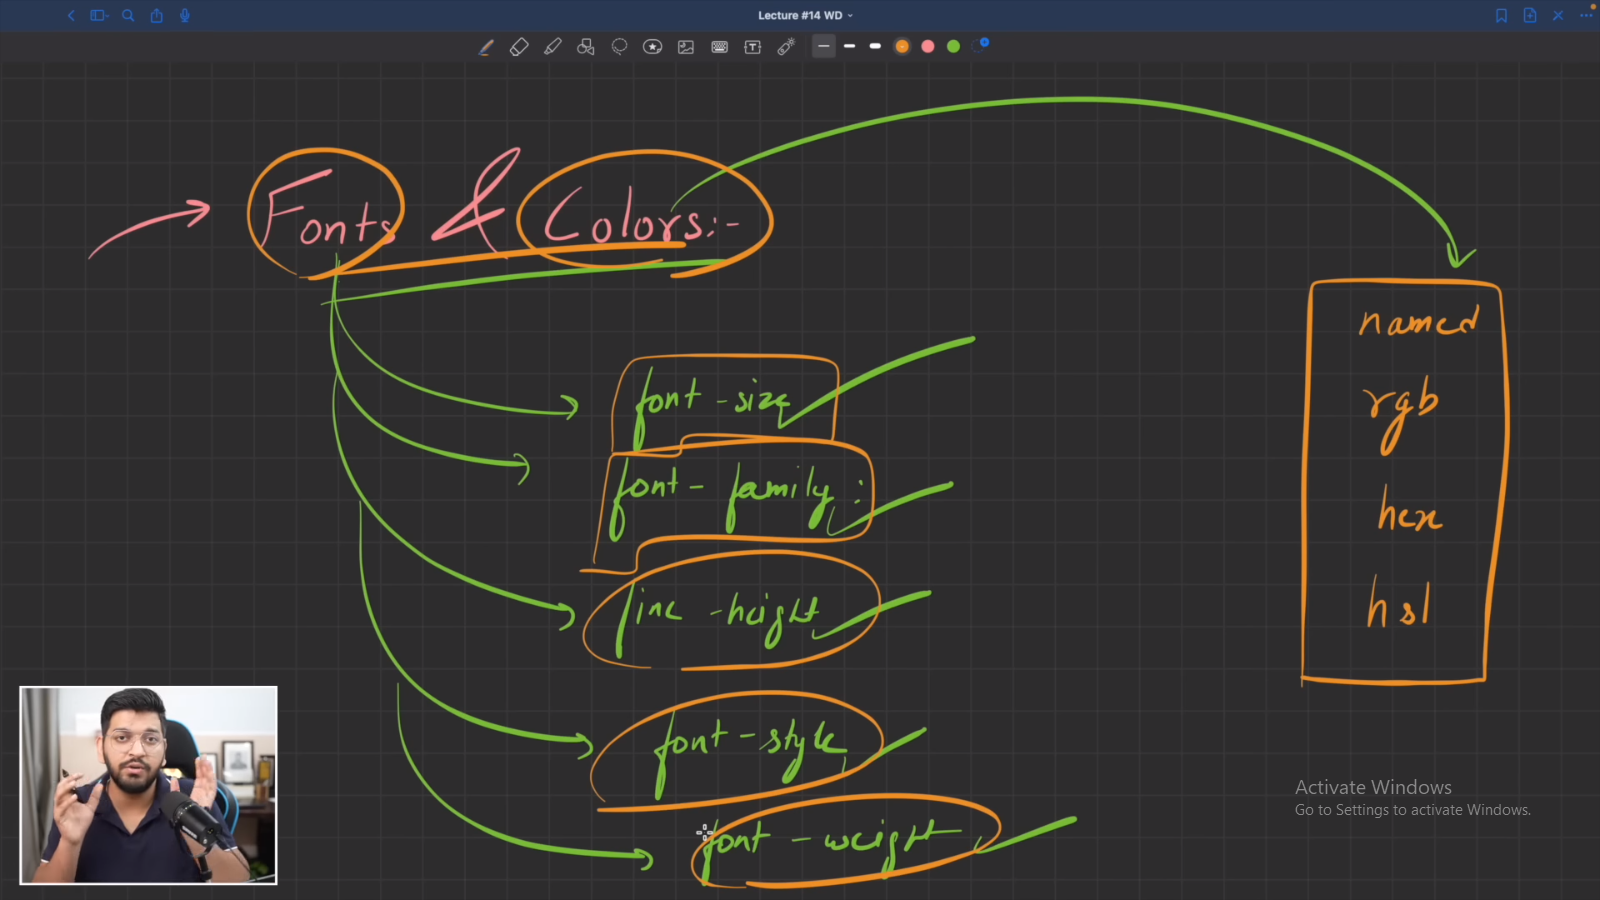 Lecture #14 WD
Fonts & Colors:-
font-size
font-family:
line-height
font-style
font-weight
named
rgb
hex
hsl
Activate Windows
Go to Settings to activate Windows.